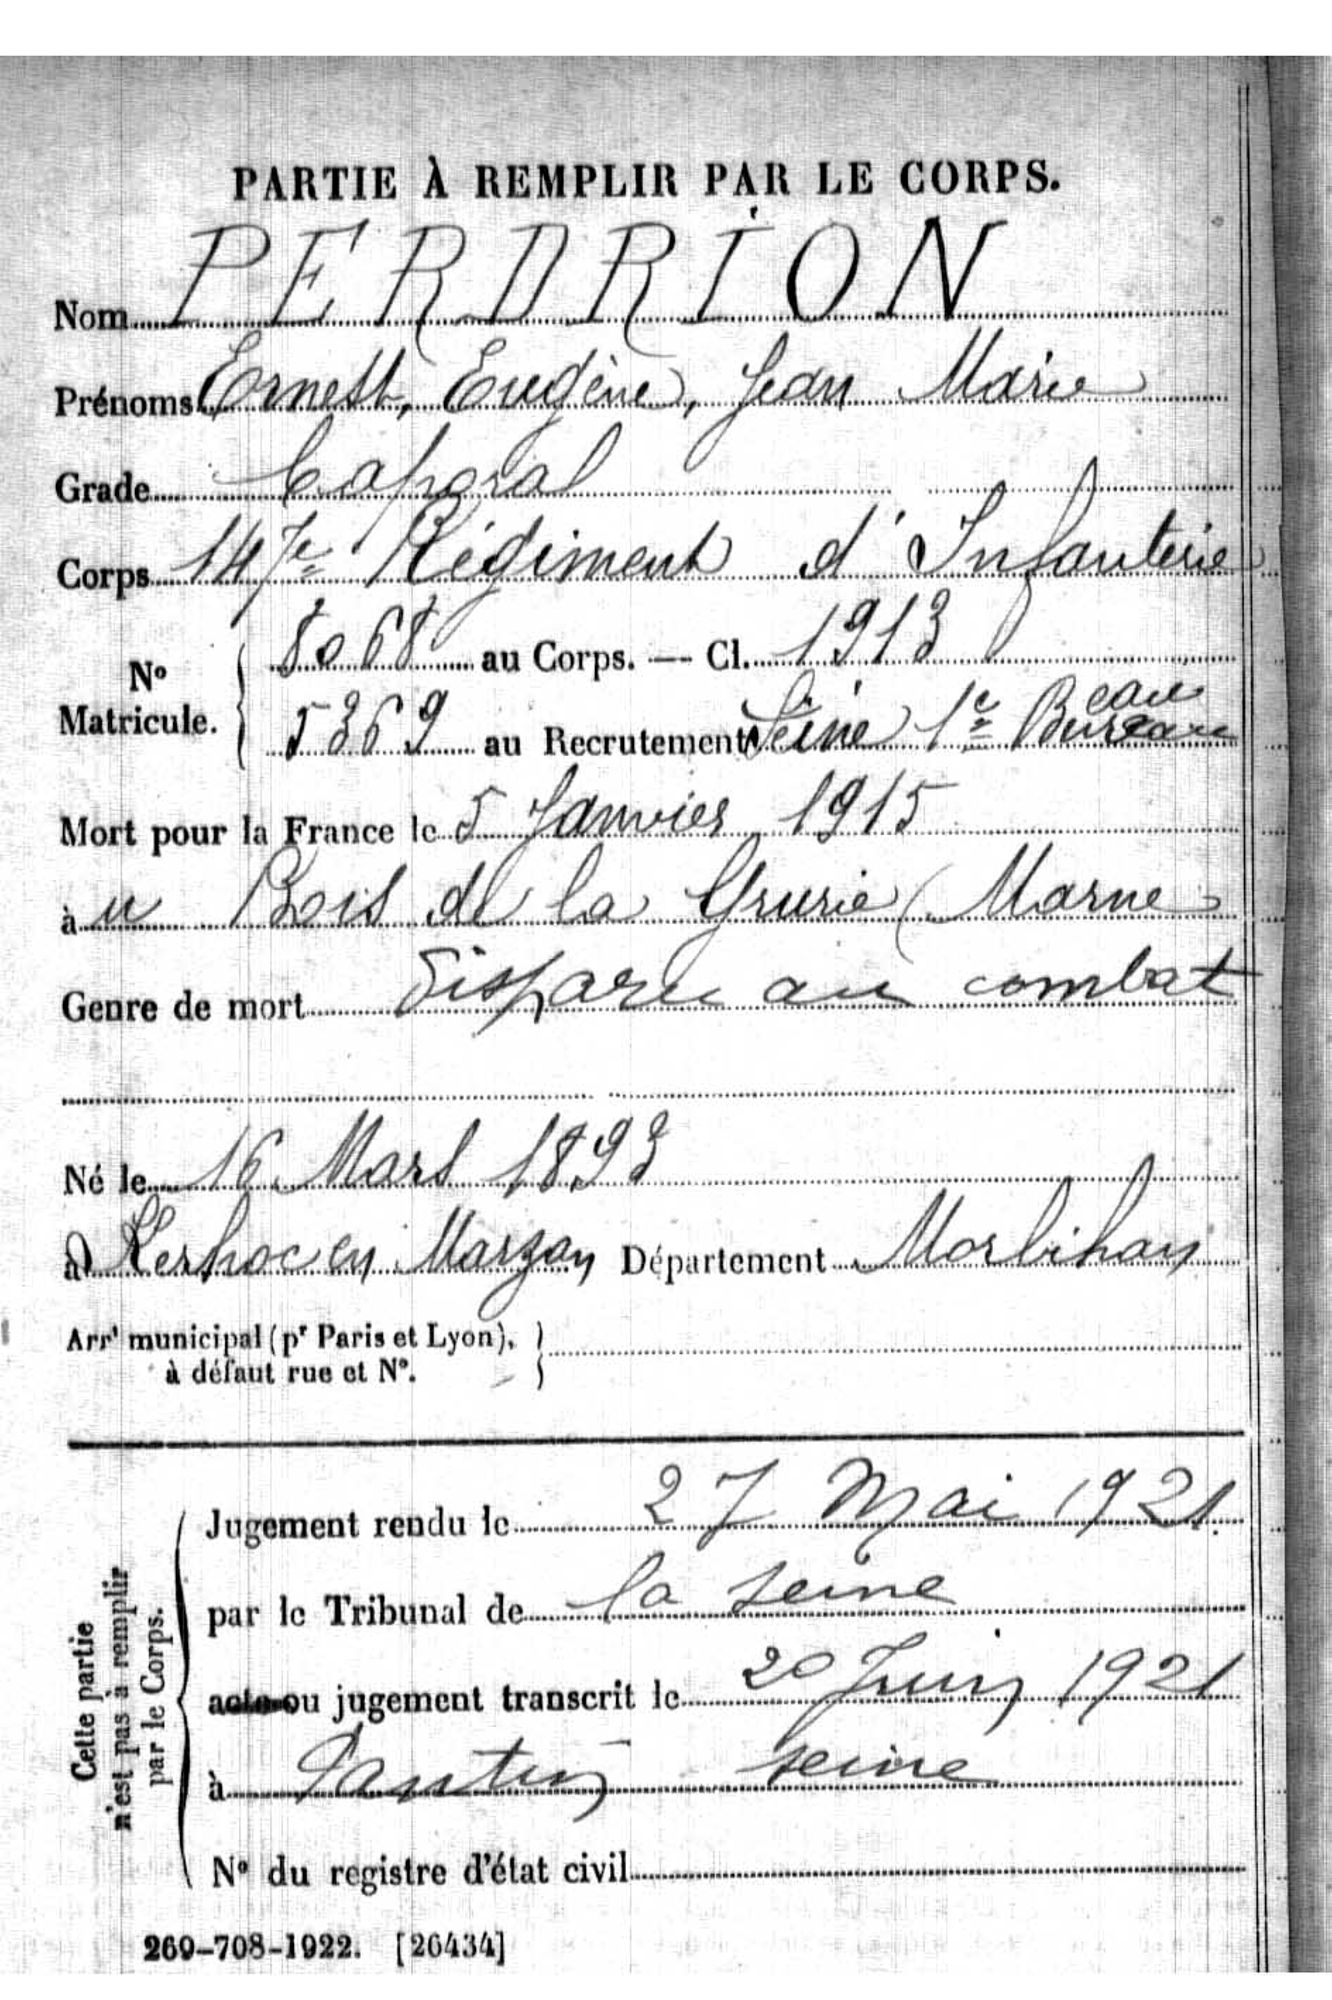 PARTIE À REMPLIR PAR LE CORPS.
Nom PERDRION
Prénoms Ernest, Eugène, Jean Marie
Grade Caporal
Corps 147e Régiment d'Infanterie
No Matricule. { 8068 au Corps. — Cl. 1913
5369 au Recrutement Seine 1e Bureau eau
Mort pour la France le 5 Janvier 1915
à u Bois de la Grurie (Marne
Genre de mort Disparu au combat
Né le 16 Mars 1893
à Kerhoc en Marzan Département Morbihan
Arrt municipal (pr Paris et Lyon), }
à défaut rue et No.
Cette partie n'est pas à remplir par le Corps.
Jugement rendu le 27 Mai 1921.
par le Tribunal de la Seine
acte ou jugement transcrit le 20 Juin 1921
à Pantin Seine
No du registre d'état civil
269-708-1922. [26434]